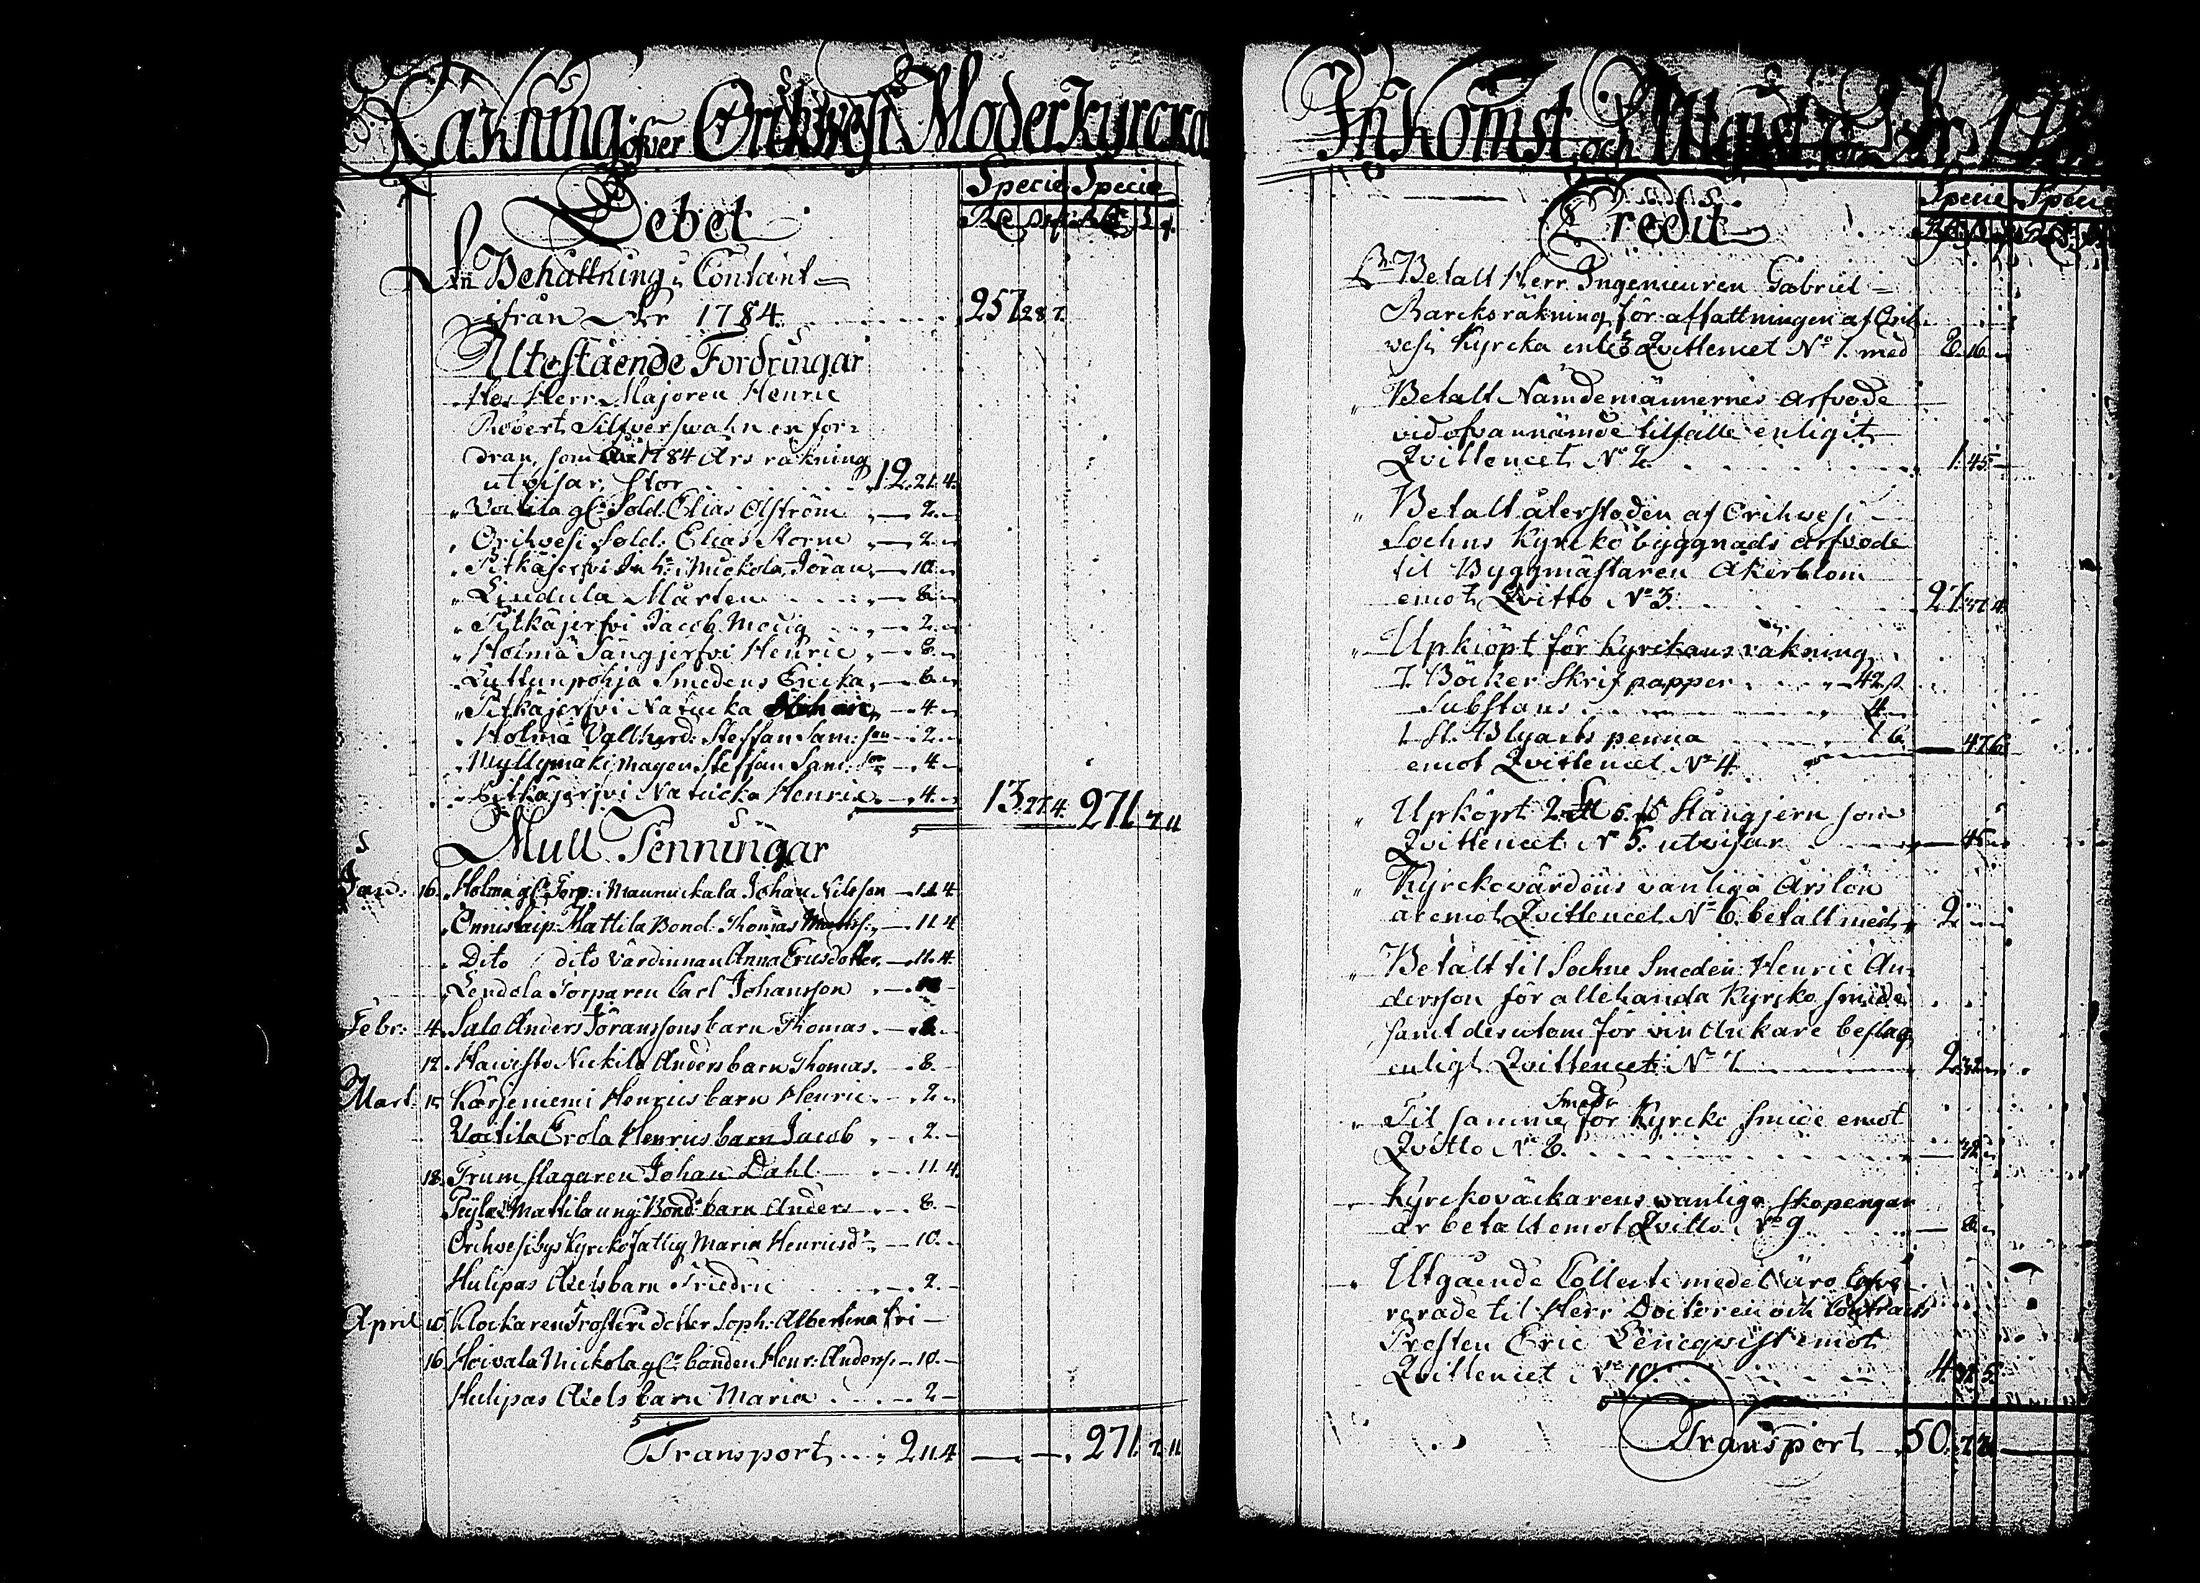 Räkning öfver Orihvesi Moder Kyrcka
Specie Specie
Debet
Behållning i Contant
ifrån År 1784 257 28 7
Utestående Fordringar
Hos Herr Majoren Henric
Robert Silfverswahn en for-
dran, som 1784 Års räkning
utvisar, stor 12. 21. 4.
Sold. Elias Ölström 2.
Orihvesi Sold. Elias Storm 2.
Pitkäjerfvi Inh. Muckola Jöran 10.
Lindula Mårten 8.
Pitkäjerfvi Jacob 2.
Holma Sängjerfvi Henric 8.
Luttunpohja Smedens Ericka 6.
Pitkäjerfvi Natucka 4.
Holma Vallherd: Steffan Sam: son 2.
Myllymäki Magen Steffan Sam: son 4.
Pitkäjerfvi Natucka Henric 4. 13. 27. 4. 271 7 11
Mull Penningar
Jan. 16. Holma Torp: i Maunuckala Johan Nilsson 11 4
Mattila Bond. Thomas 11 4
Dito dito Värdinnan Anna Ericsdotter 11. 4.
Lendola Torparen Carl Johansson
Febr: 4. Salo Anders Jöranssons barn Thomas
12. Nickilä Anders barn Thomas. 8.
Mart. 15 Kärjeniemi Henrics barn Henric 2.
Voitila Erola Henrics barn Jacob 2.
18. Trumslagaren Johan Dahl 11 4.
Mattila ung: Bond: barn Anders 8.
Orihvesi bys Kyrckofattig Maria Henricsd: 10.
Hulipas Axels barn Friedric 2.
April 10 Klockaren dotter Soph: Albertina fri
16. Hoivala Muckola bonden Henr: Anders. 10.
Hulipas Axels barn Maria 2
Transport 2 11 4 271. 7 11
Inkomst och Utgift
Specie Specie
Credit
Betalt Herr Ingenieuren Gabriel
Barcks räkning för affattningen af Ori-
vesi Kyrcka Qvittencet No 1. med 16
Betalt Nämdemännernes arfvode
vid ofvannämde tilfälle enligit
Qvittencet No 2. 1. 45
Betalt återstoden af Orihvesi
Sochns Kyrcko byggnads arfvode
til Byggmästaren Åkerblom
emot Qvitto No 3.
Upkiöpt för Kyrckans räkning
7. Böcker Skrif papper 42
Substans 4
1 st. Blyarts penna 6
emot Qvittencet No 4. 47 6
Upköpt Stångjern som
Qvittencet No 5. utvisar 45
Kyrckovärdens vanliga Årslön
är emot Qvittencet No 6. betalt med 2.
Betalt til Sochne Smeden: Henric An-
dersson för allehanda Kyrcko smide
samt desutom för vin Ankare beslag
enligt Qvittencet No 7 2.
Til samma Smed för Kyrcko smide emot
Qvitto No 8. 32
Kyrckoväckarens vanliga skopengar
är betalt emot Qvitto No 9 8.
Utgående Collecte medel äro
rerade til Herr Doctoren och Contracts
Prosten Eric Lencqvist emot
Qvittencet No 10. 4
Transport 50.